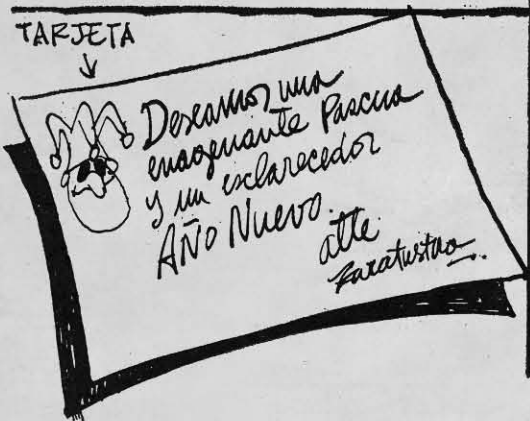 TARJETA
Deseamos una
enagenante Pascua
y un esclarecedor
AÑO NUEVO.
atte
Zaratustra